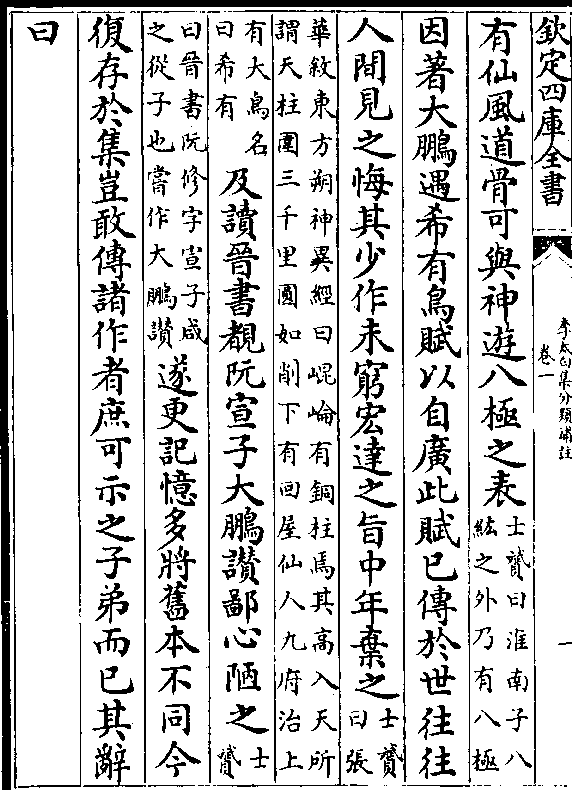 欽定四庫全書
李太白集分類補註
卷一
一
有仙風道骨可與神遊八極之表士贇曰淮南子八
紘之外乃有八極
因著大鵬遇希有鳥賦以自廣此賦已傳於世往往
人間見之悔其少作未窮宏達之旨中年棄之士贇
曰張
華紋東方朔神異經曰崐崘有銅柱焉其高入天所
謂天柱圍三千里圓如削下有回屋仙人九府治上
有大鳥名
曰希有
及讀晉書覩阮宣子大鵬讚鄙心陋之士
贇
曰晉書阮修字宣子咸
之從子也嘗作大鵬讚
遂更記憶多將舊本不同今
復存於集豈敢傳諸作者庶可示之子弟而已其辭
曰